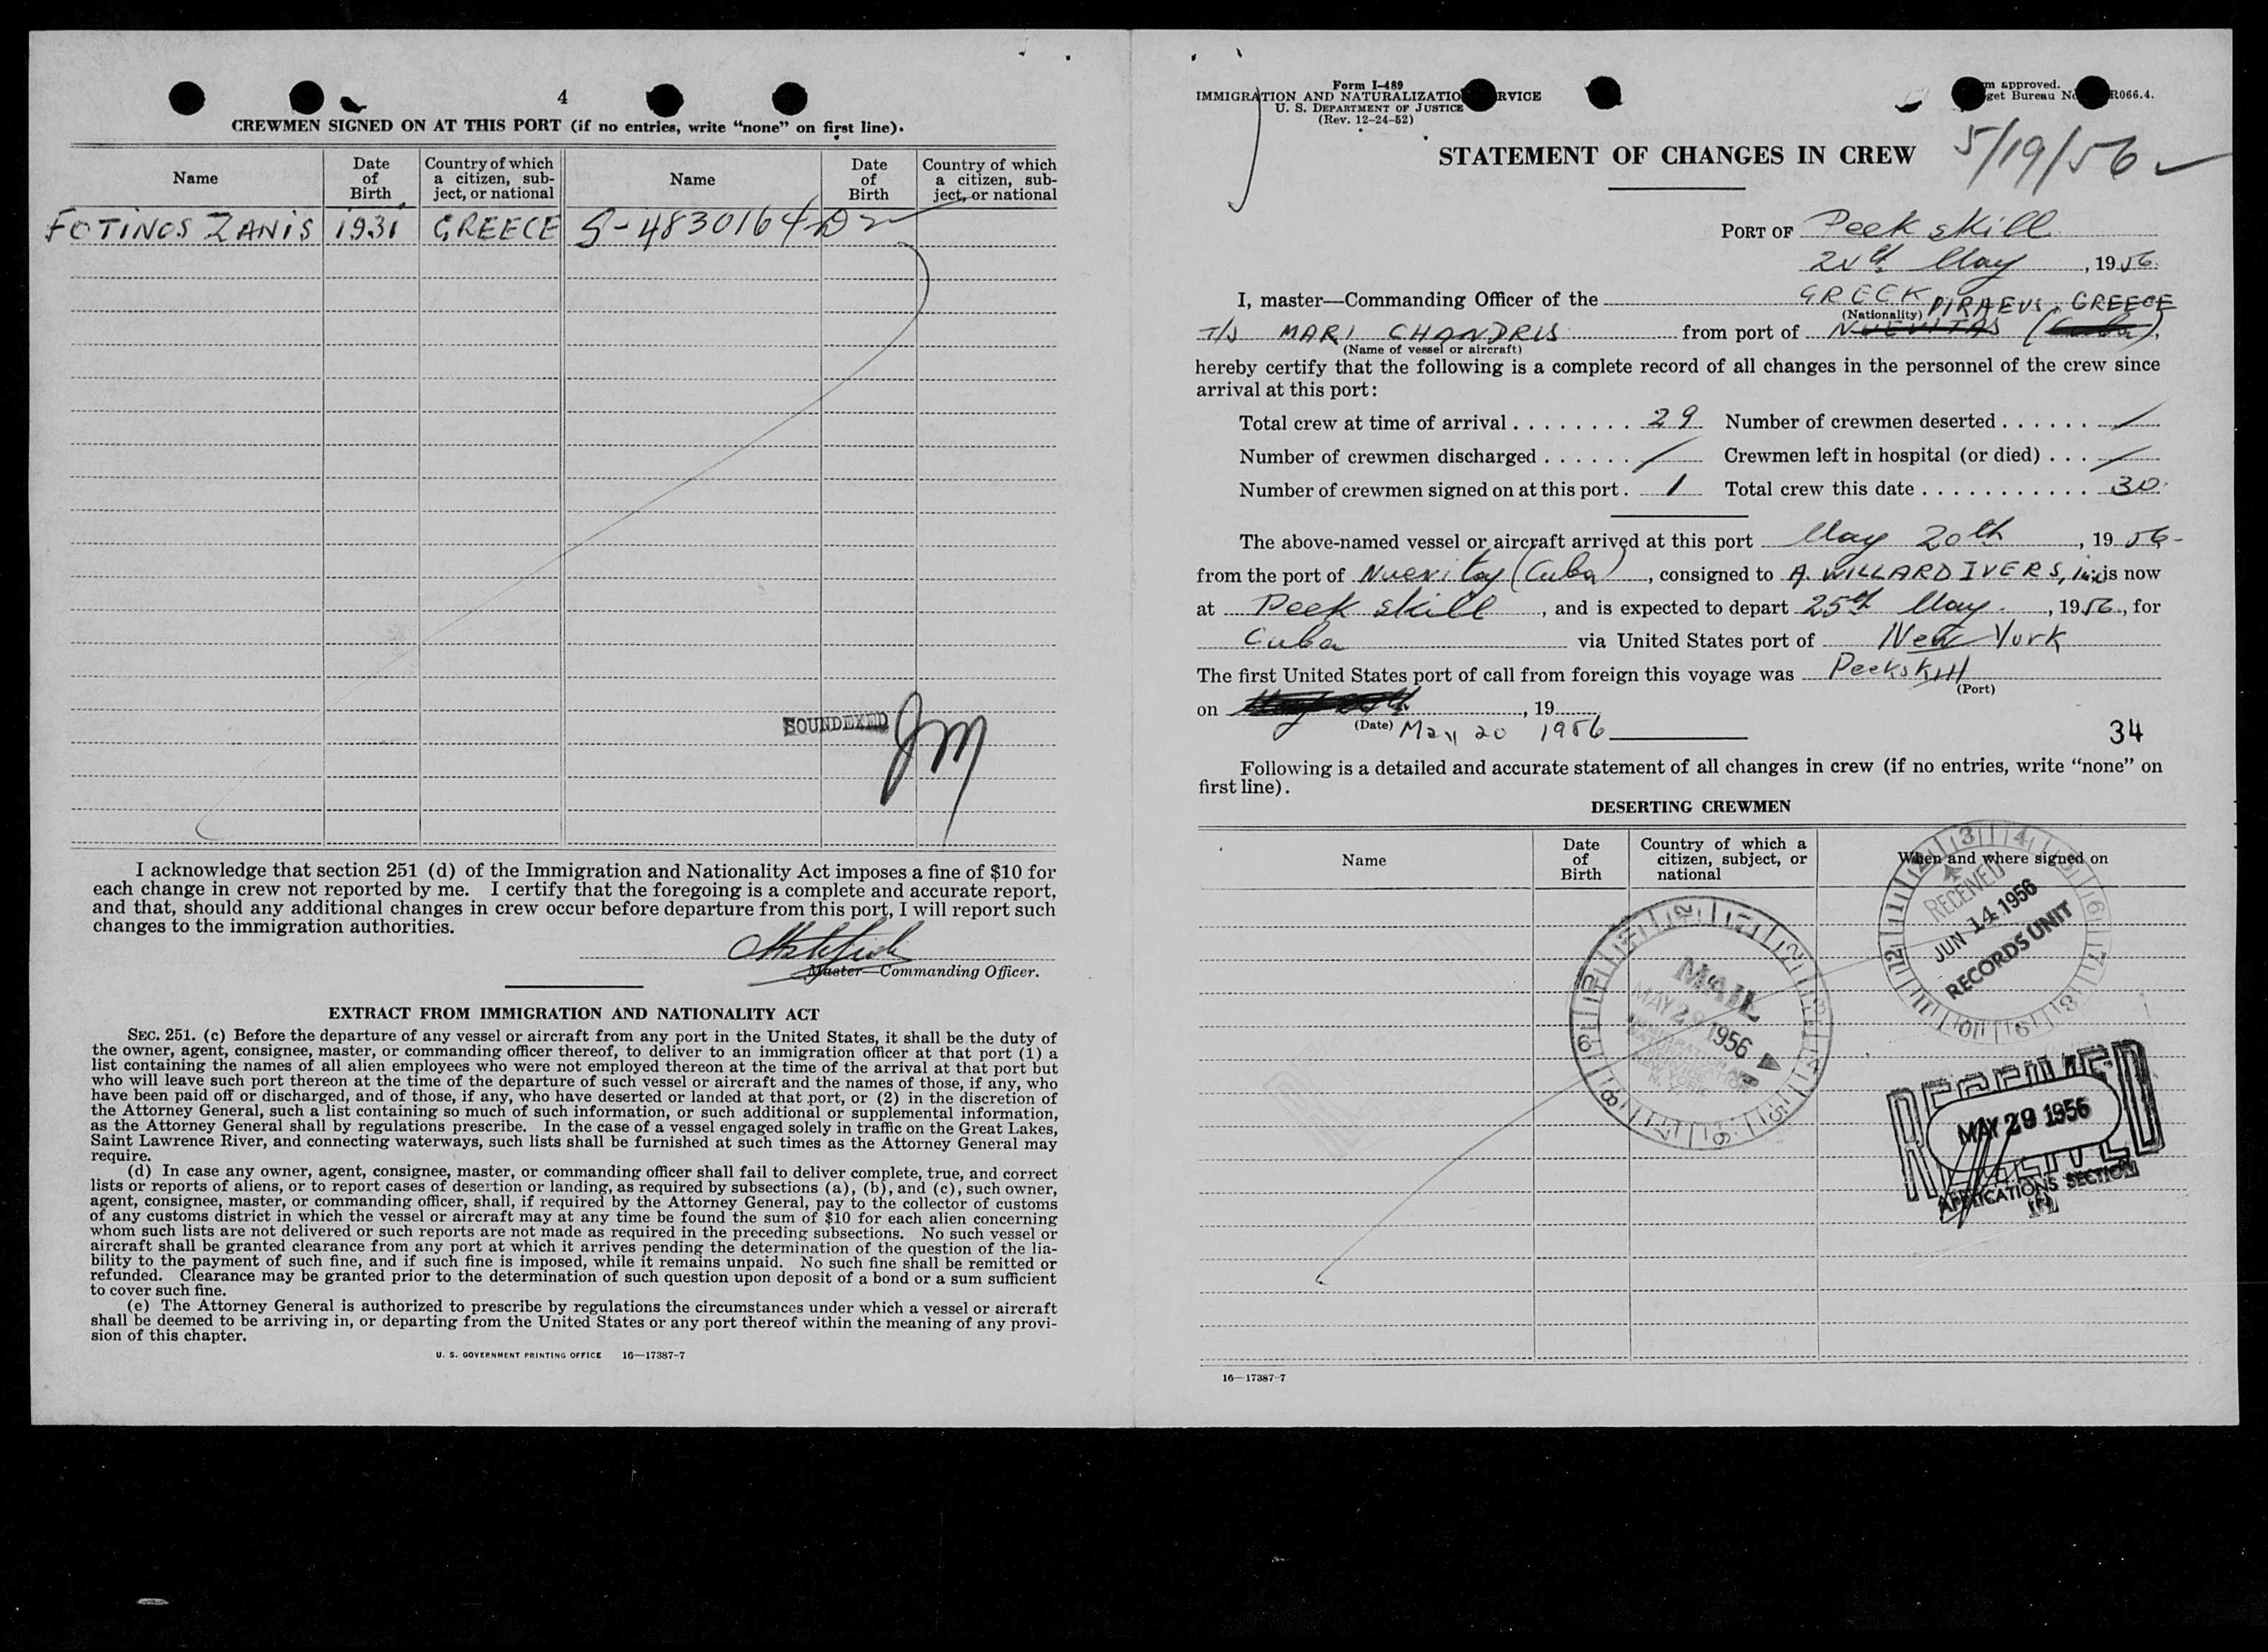 4
CREWMEN SIGNED ON AT THIS PORT (if no entries, write “none” on first line).
Name Date of Birth Country of which a citizen, subject, or national Name Date of Birth Country of which a citizen, subject, or national
FOTINOS ZANIS 1931 GREECE S-4830164
SOUNDEXED
JM
I acknowledge that section 251 (d) of the Immigration and Nationality Act imposes a fine of $10 for
each change in crew not reported by me. I certify that the foregoing is a complete and accurate report,
and that, should any additional changes in crew occur before departure from this port, I will report such
changes to the immigration authorities.
Master—Commanding Officer.
EXTRACT FROM IMMIGRATION AND NATIONALITY ACT
SEC. 251. (c) Before the departure of any vessel or aircraft from any port in the United States, it shall be the duty of
the owner, agent, consignee, master, or commanding officer thereof, to deliver to an immigration officer at that port (1) a
list containing the names of all alien employees who were not employed thereon at the time of the arrival at that port but
who will leave such port thereon at the time of the departure of such vessel or aircraft and the names of those, if any, who
have been paid off or discharged, and of those, if any, who have deserted or landed at that port, or (2) in the discretion of
the Attorney General, such a list containing so much of such information, or such additional or supplemental information,
as the Attorney General shall by regulations prescribe. In the case of a vessel engaged solely in traffic on the Great Lakes,
Saint Lawrence River, and connecting waterways, such lists shall be furnished at such times as the Attorney General may
require.
(d) In case any owner, agent, consignee, master, or commanding officer shall fail to deliver complete, true, and correct
lists or reports of aliens, or to report cases of desertion or landing, as required by subsections (a), (b), and (c), such owner,
agent, consignee, master, or commanding officer, shall, if required by the Attorney General, pay to the collector of customs
of any customs district in which the vessel or aircraft may at any time be found the sum of $10 for each alien concerning
whom such lists are not delivered or such reports are not made as required in the preceding subsections. No such vessel or
aircraft shall be granted clearance from any port at which it arrives pending the determination of the question of the lia-
bility to the payment of such fine, and if such fine is imposed, while it remains unpaid. No such fine shall be remitted or
refunded. Clearance may be granted prior to the determination of such question upon deposit of a bond or a sum sufficient
to cover such fine.
(e) The Attorney General is authorized to prescribe by regulations the circumstances under which a vessel or aircraft
shall be deemed to be arriving in, or departing from the United States or any port thereof within the meaning of any provi-
sion of this chapter.
U. S. GOVERNMENT PRINTING OFFICE 16—17387-7
Form I-489
IMMIGRATION AND NATURALIZATIO RVICE
U. S. DEPARTMENT OF JUSTICE
(Rev. 12-24-52)
m approved.
get Bureau No R066.4.
STATEMENT OF CHANGES IN CREW
5/19/56
PORT OF Peekskill
May, 1956.
I, master—Commanding Officer of the GREEK PIRAEUS, GREECE
(Nationality)
T/S MARI CHANDRIS from port of NUEVITAS (Cuba),
(Name of vessel or aircraft)
hereby certify that the following is a complete record of all changes in the personnel of the crew since
arrival at this port:
Total crew at time of arrival . . . . . . . . 29 Number of crewmen deserted . . . . . . /
Number of crewmen discharged . . . . . . / Crewmen left in hospital (or died) . . . /
Number of crewmen signed on at this port . 1 Total crew this date . . . . . . . . . . . . 30
The above-named vessel or aircraft arrived at this port May 20th, 1956
from the port of Nuevitas (Cuba), consigned to A. WILLARD IVERS, inc is now
at Peekskill, and is expected to depart 25th May, 1956, for
Cuba via United States port of New York
The first United States port of call from foreign this voyage was Peekskill
(Port)
on , 19
(Date) May 20 1956
34
Following is a detailed and accurate statement of all changes in crew (if no entries, write “none” on
first line).
DESERTING CREWMEN
Name Date of Birth Country of which a citizen, subject, or national When and where signed on
RECEIVED
JUN 14 1956
RECORDS UNIT
MAIL
MAY 29 1956
RECEIVED
MAY 29 1956
APPLICATIONS SECTION
16—17387-7